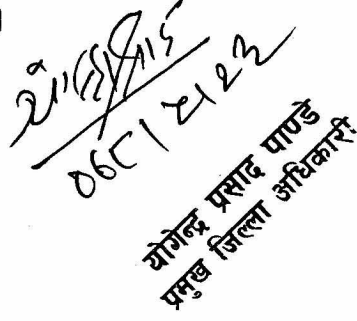 ०६८।५।२३
योगेन्द्र प्रसाद पाण्डे
प्रमुख जिल्ला अधिकारी